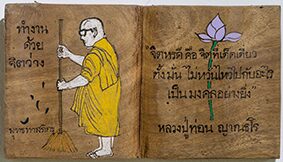 ทำงาน
ด้วย
จิตว่าง
"จิตหรดี คือ จิตที่เด็ดเดี่ยว
ทั้งมัน ไม่หวั่นไหวไปกับอะไร
เป็น มงคลอย่างยิ่ง"
หลวงปู่ท่อน ญาณธโร